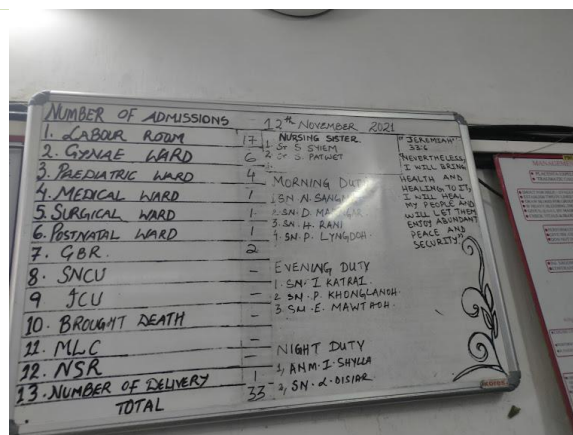 NUMBER OF ADMISSIONS
1. LABOUR ROOM 17
2. GYNAE WARD 6
3. PAEDIATRIC WARD 4
4. MEDICAL WARD 1
5. SURGICAL WARD 1
6. POSTNATAL WARD 1
7. GBR 2
8. SNCU -
9 ICU -
10. BROUGHT DEATH -
11. MLC -
12. NSR -
13. NUMBER OF DELIVERY 1
TOTAL 33
12th NOVEMBER 2021
NURSING SISTER
1. Sr S SYIEM
2 Sr S. PATWET
MORNING DUTY
1 SN. N.
2. SN. D.
3. SN. H. RANI
4. SN. P. LYNGDOH.
EVENING DUTY
1. SN. I KATRAI.
2 SN. P. KHONGLANOH.
3. SN. E. MAWTHOH.
NIGHT DUTY
1, ANM. I. SHYLLA
2, SN. L. DISIAR
"JEREMIAH"
33:6
"NEVERTHELESS,
I WILL BRING
HEALTH AND
HEALING TO IT,
I WILL HEAL
MY PEOPLE AND
WILL LET THEM
ENJOY ABUNDANT
PEACE AND
SECURITY"